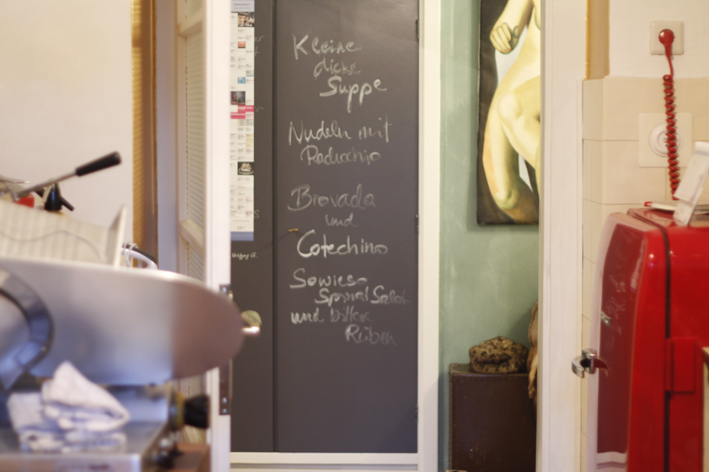 Kleine
dicke
Suppe
Nudeln mit
Radicchio
Brovada
und
Cotechino
Sowieso
Spezial Salat
und bittere
Rüben